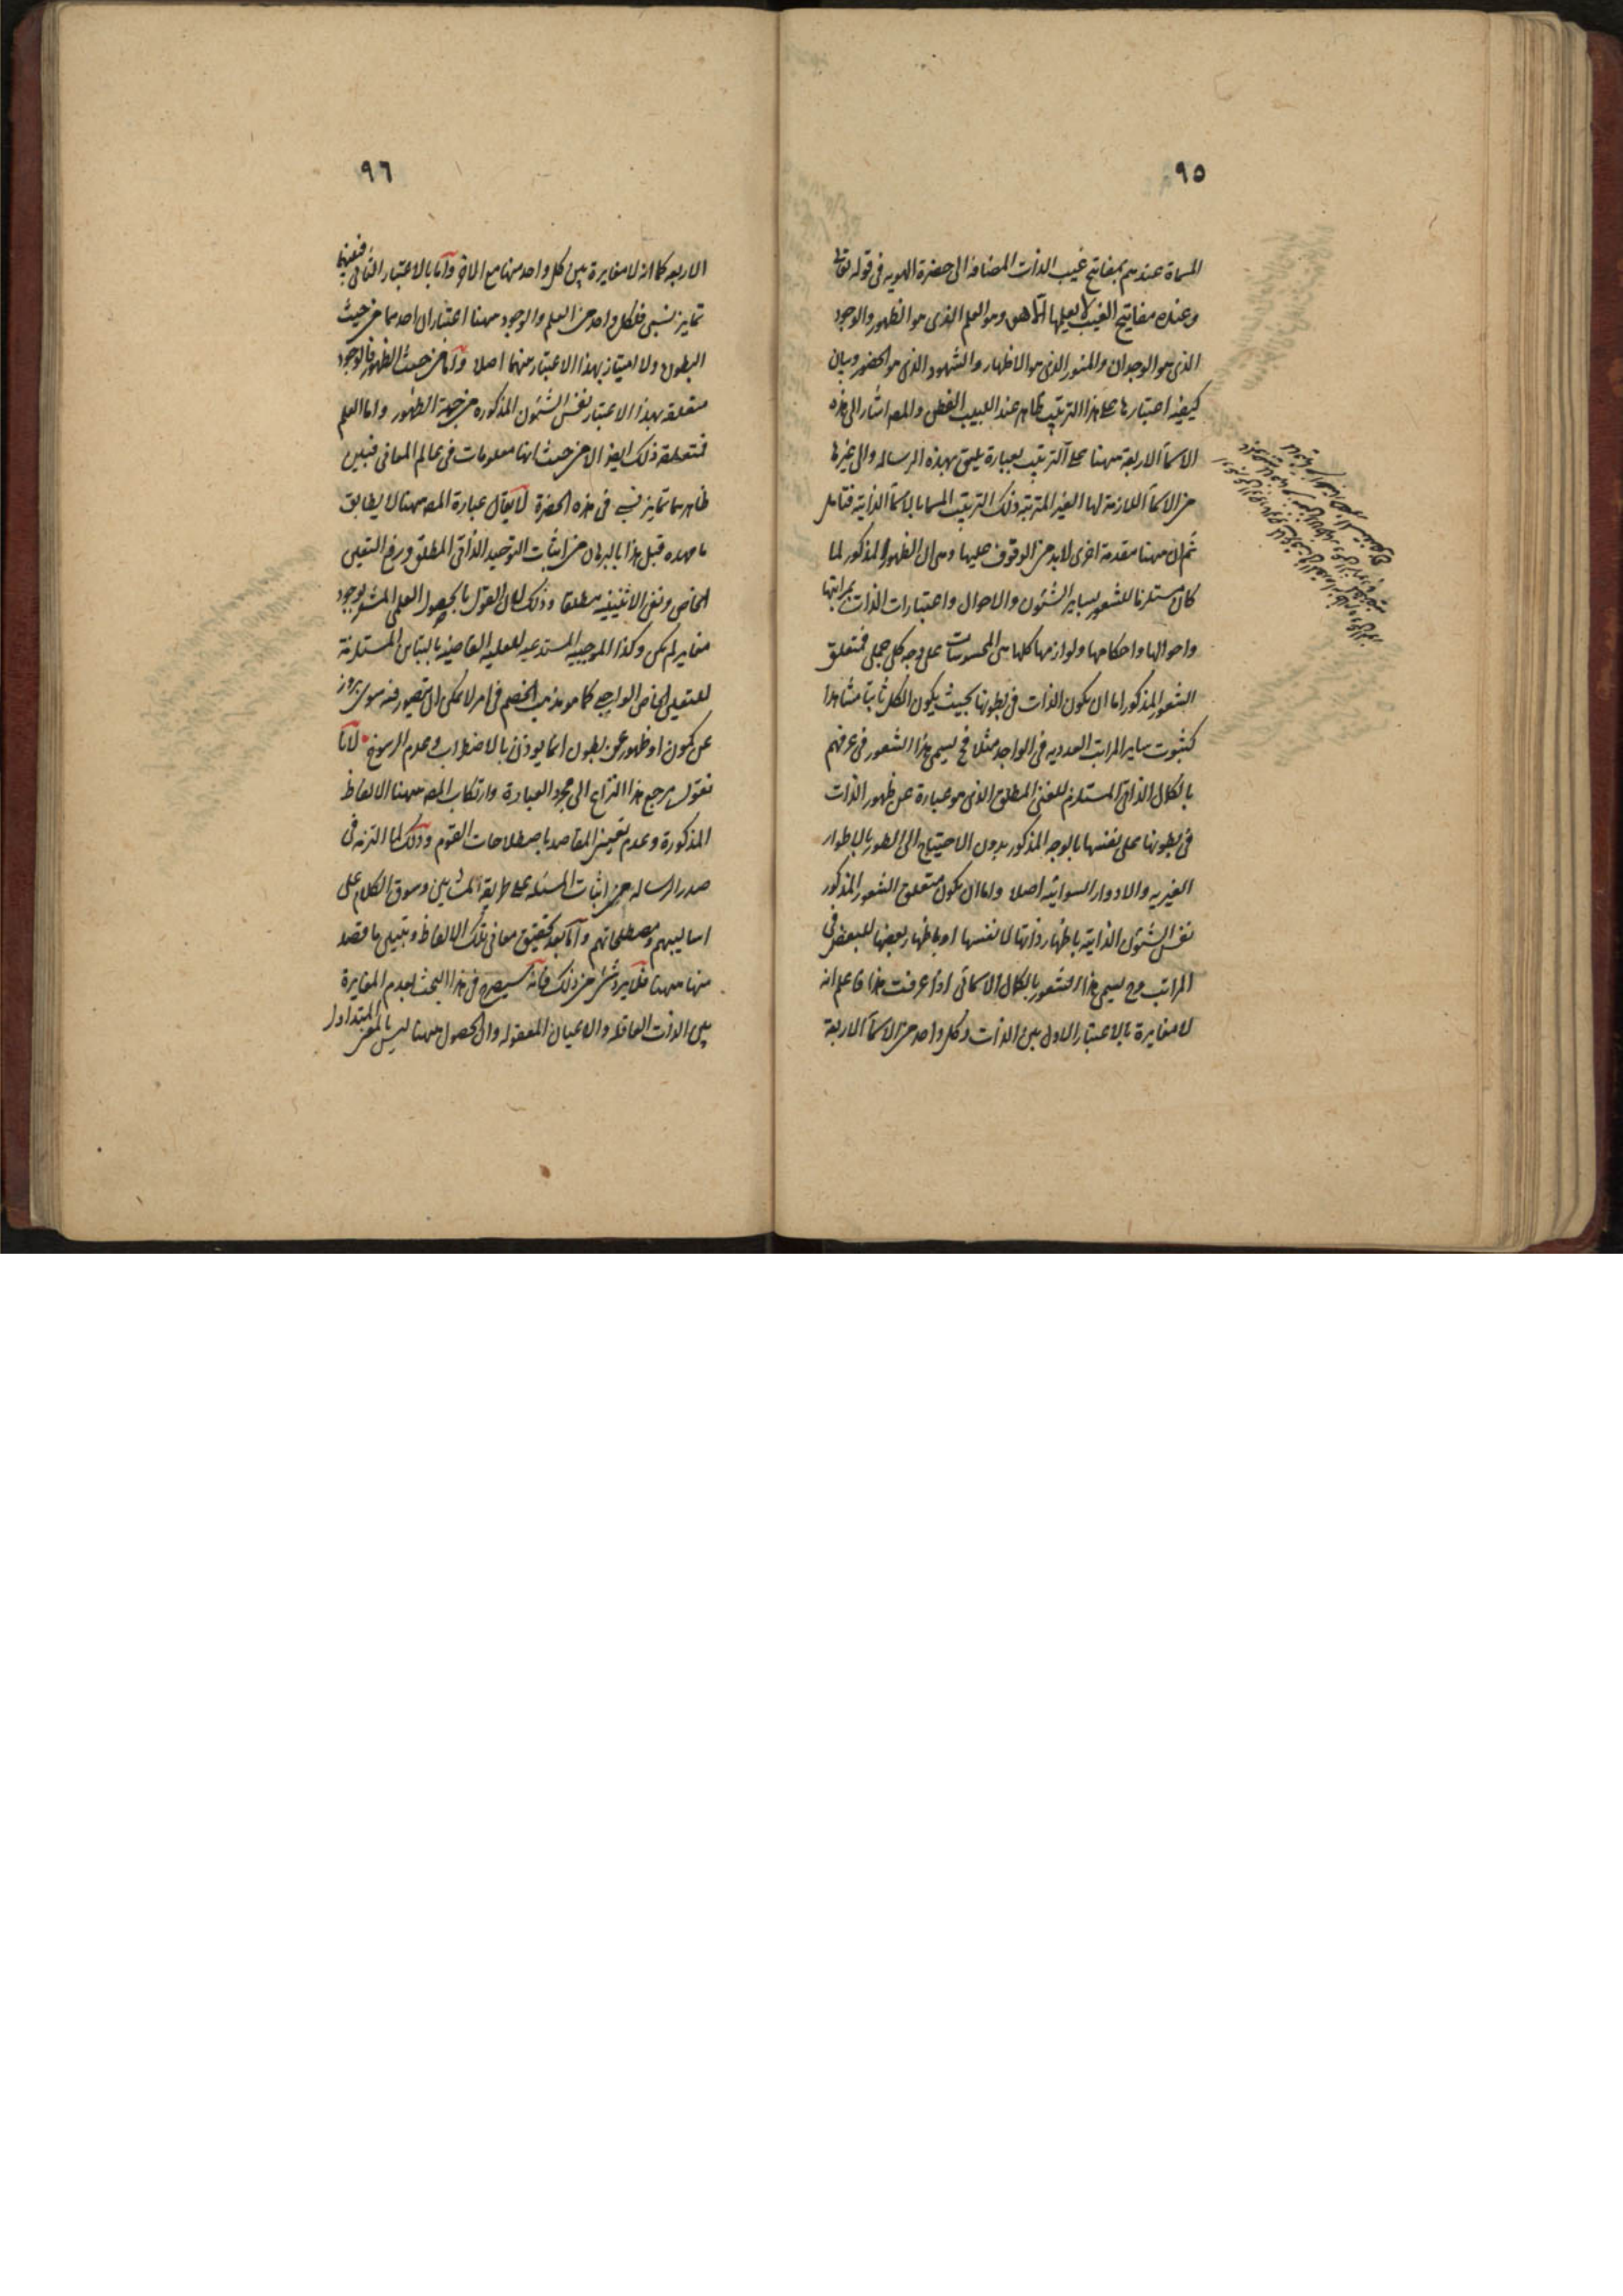 ٩٥
المسماة عندهم بمفاتيح غيب الذات المضافه الى حضرة الهويه فى قوله تعالى
وعنده مفاتيح الغيب لا يعلمها الا هو وهو العلم الذى هو الظهور والوجود
الذى هو الوجدان والنور الذى هو الاظهار والشهود الذى هو الحضور وبيان
كيفيه اعتبارها على هذا الترتيب ظاهر عند اللبيب الفطن والمص اشار الى هذه
الاسمآ الاربعة ههنا على الترتيب بعبارة يليق بهذه الرساله والى غيرها
من الاسمآ اللازمة لها الغير المترتبه ذلك الترتيب المسما بالاسمآ الذاتيه فتأمل
ثم ان ههنا مقدمة اخرى لابد من الوقوف عليها وهى ان الظهور المذكور لما
كان مستلزما للشعور بساير الشئون والاحوال واعتبارات الذات بمراتبها
واحوالها واحكامها ولوازمها كلها حتى المحسوسات على وجه كلى جملى فمتعلق
الشعور المذكور اما ان يكون الذات فى بطونها بحيث يكون الكل ثابتا مشاهدا
كثبوت ساير المراتب العدديه فى الواحد مثلا فح يسمى هذا الشعور فى عرفهم
بالكمال الذاتى المستلزم للغنى المطلق الذى هو عبارة عن ظهور الذات
فى بطونها على نفسها بالوجه المذكور بدون الاحتياج الى الطور بالاطوار
الغيريه والادوار السوائيه اصلا واما ان يكون متعلق الشعور المذكور
نفس الشئون الذاتيه باظهار ذاتها لانفسها او باظهار بعضها للبعض فى
المراتب وح يسمى هذا الشعور بالكمال الاسمائى اذا عرفت هذا فاعلم انه
لا مغايرة بالاعتبار الاول بين الذات وكل واحد من الاسمآ الاربعة
٩٦
الاربعه كما انه لا مغايرة بين كل واحد منها مع الاخر وأما بالاعتبار الثانى فبينها
تمايز نسبى فلكل واحد من العلم والوجود ههنا اعتباران احدهما من حيث
البطون ولا امتياز بهذا الاعتبار بينهما اصلا وأما من حيث الظهور فالوجود
متعلقه بهذا الاعتبار نفس الشئون المذكورة من جهة الظهور واما العلم
فمتعلقه ذلك ايضا الا من حيث انها معلومات فى عالم المعانى فبين
ظاهرهما تمايز نسبى فى هذه الحضرة لا يقال عبارة المص ههنا لا يطابق
ما مهده قبل هذا بالبرهان من اثبات التوحيد الذاتى المطلق ورفع التعين
الخاص ونفى الاثنينيه مطلقا وذلك لان القول بالحصول العلمى المشعر بوجود
مغاير لم يكن وكذا الموجبيه المستدعيه للعليه القاضيه بالتباين المستلزمة
للتعين الخاص الواجبى كما هو مذهب الخصم فى امر لا يمكن ان يتصور فيه سوى بروز
عن كمون او ظهور عن بطون انما يوذن بالاضطراب وعدم الرسوخ لانا
نقول مرجع هذا النزاع الى مجرد العبارة وارتكاب المص ههنا الالفاظ
المذكورة وعدم تعيين المقاصد باصطلاحات القوم وذلك لما التزمه فى
صدر الرساله من اثبات المسئله على طريقة المشائين وسوق الكلام على
اساليبهم ومصطلحاتهم وأما بعد تحقيق معانى تلك الالفاظ وتبيين ما قصد
منها ههنا فلا يرد شئ من ذلك فانه سيصرح فى هذا البحث بعدم المغايرة
بين الذات العاقله والاعيان المعقوله وان الحصول ههنا ليس بالمعنى المتداول